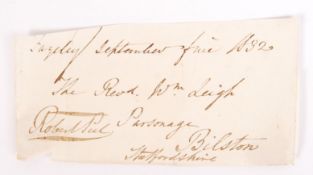 Rugeley September five 1832
The Revd. Wm Leigh
Parsonage
Robert Peel
Bilston
Staffordshire